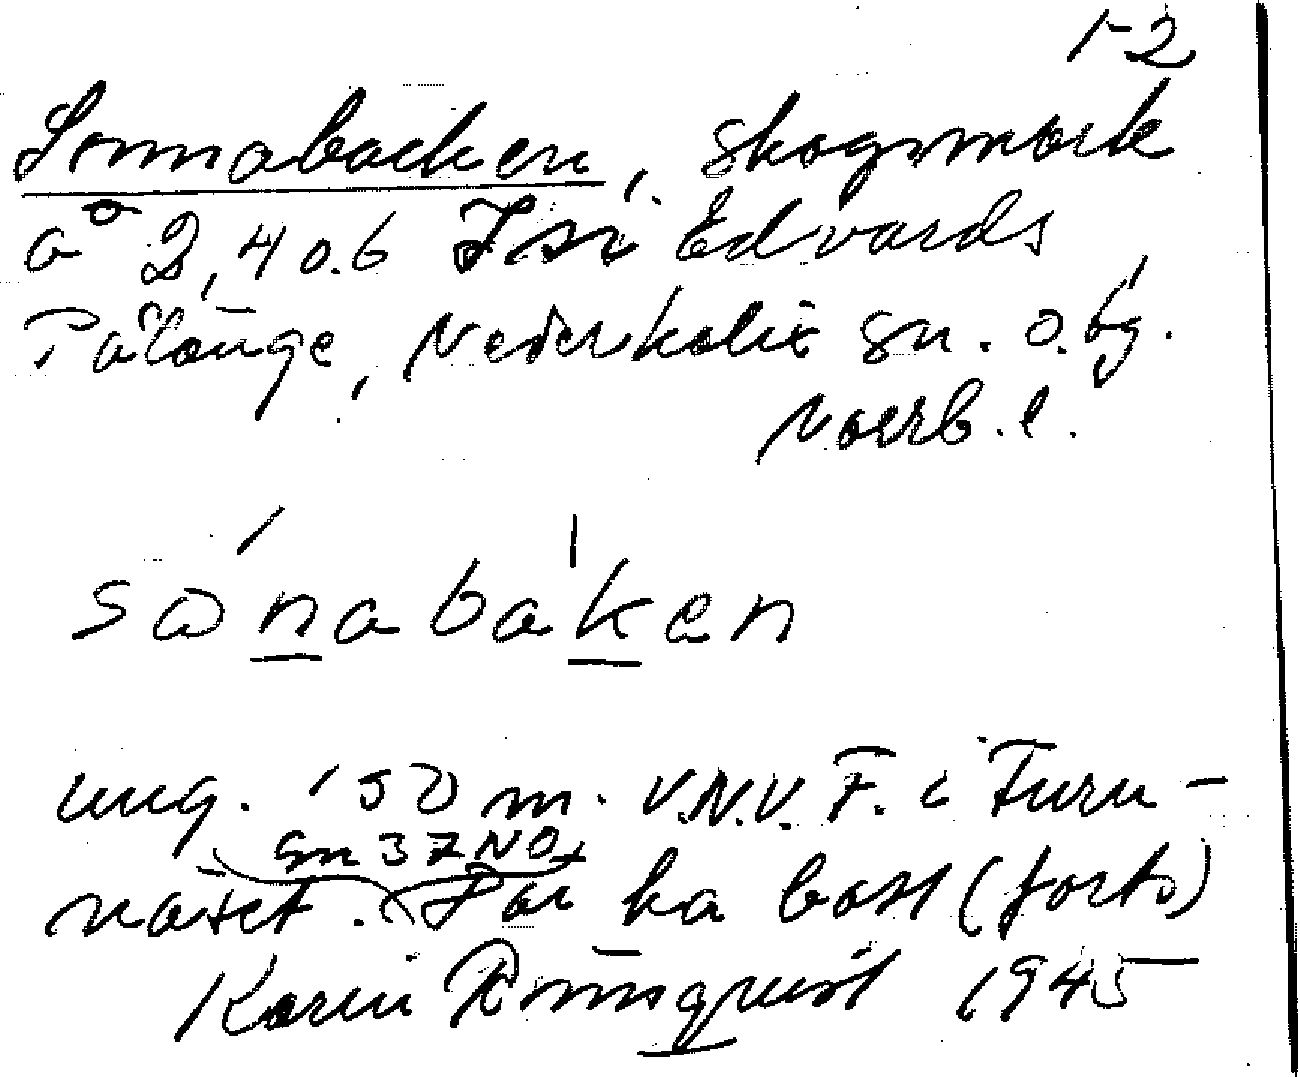 1-2
Sonnabacken, skogsmark
å 2,4 o. 6 Isi Edvards
Pålänge, Nederkalix sn. o. bg.
Norrb. l.
sånabaken
ung. 150 m. V.N.V. F. i Furu-
Gn 37 NO
näset. Där ha bott (forts)
Karin Rönnquist 1945